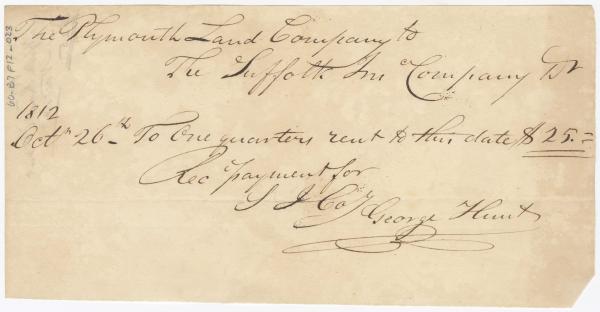 The Plymouth Land Company to
The Suffolk Ins Company Dr
1812
Octr 26th To One quarters rent to this date $ 25.=
Rec payment for
S I Coy George Hunt
60-B7 F12-023